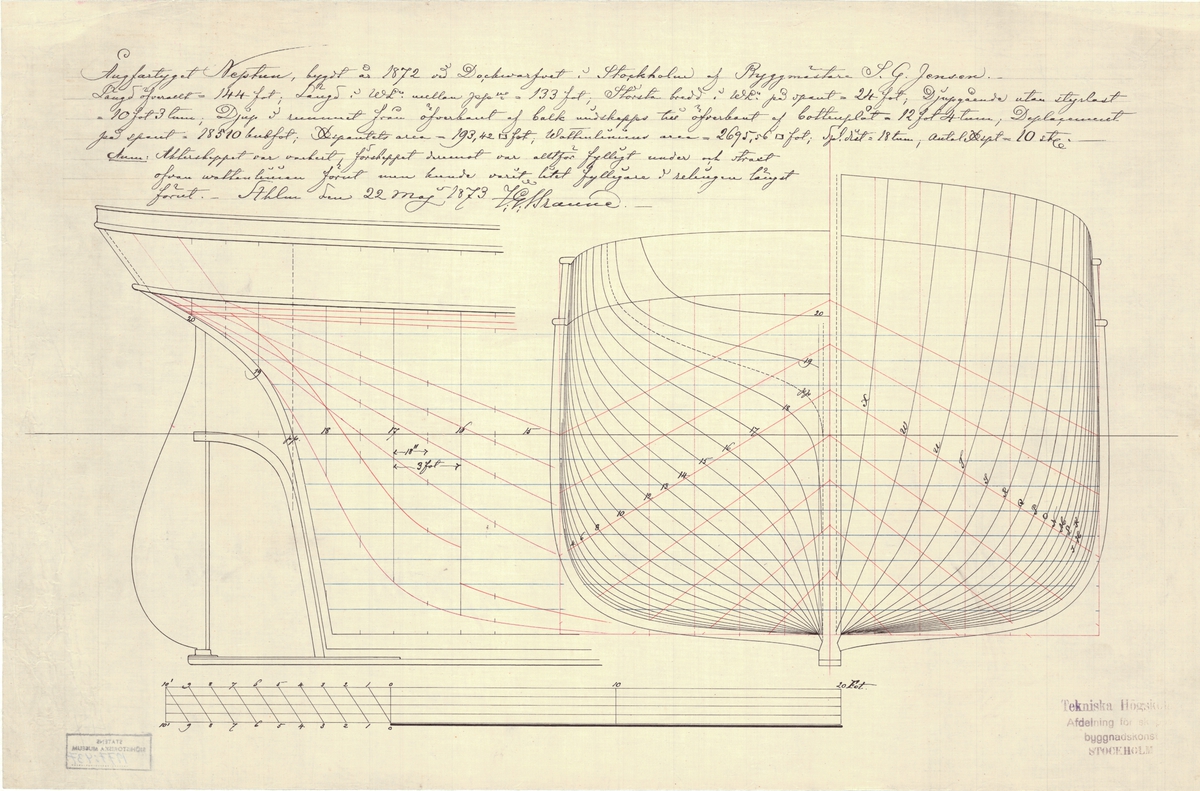 Ångfartyget Neptun, bygdt år 1872 vid Dockwarfvet i Stockholm af Byggmästare S. G. Jensen.—
Längd öfverallt = 144 fot, Längd i WLn mellan = 133 fot, Största bredd i WLn på spant = 24 fot, Djupgående utan styrlast
= 10 fot 3 tum, Djup i rummet från öfverkant af balk midskepps till öfverkant af bottenplåt = 12 fot 4 tum, Deplacement
på spant = 18510 kubfot, spantets area = 193,42 □ fot, Wattenliniens area = 2695,56 □ fot, Sp. dist = 18 tum, Antal spt = 10 stk.—
Anm: Akterskeppet var vackert, förskeppet deremot var alltför fylligt under och straxt
ofvan wattenlinien förut men kunde varit litet fylligare i relingen längst
förut.— Sthlm den 22 Maj 1873
20
19
18
17
16
15
18"
3 fot
20
19
18
17
16
15
14
13
12
10
8
6
4
10' 9 8 7 6 5 4 3 2 1 0
10
20 Fot.
10' 9 8 7 6 5 4 3 2 1 0
STATENS
SJÖHISTORISKA MUSEUM
Tekniska Högskol
Afdelning för
byggnadskonst
STOCKHOLM